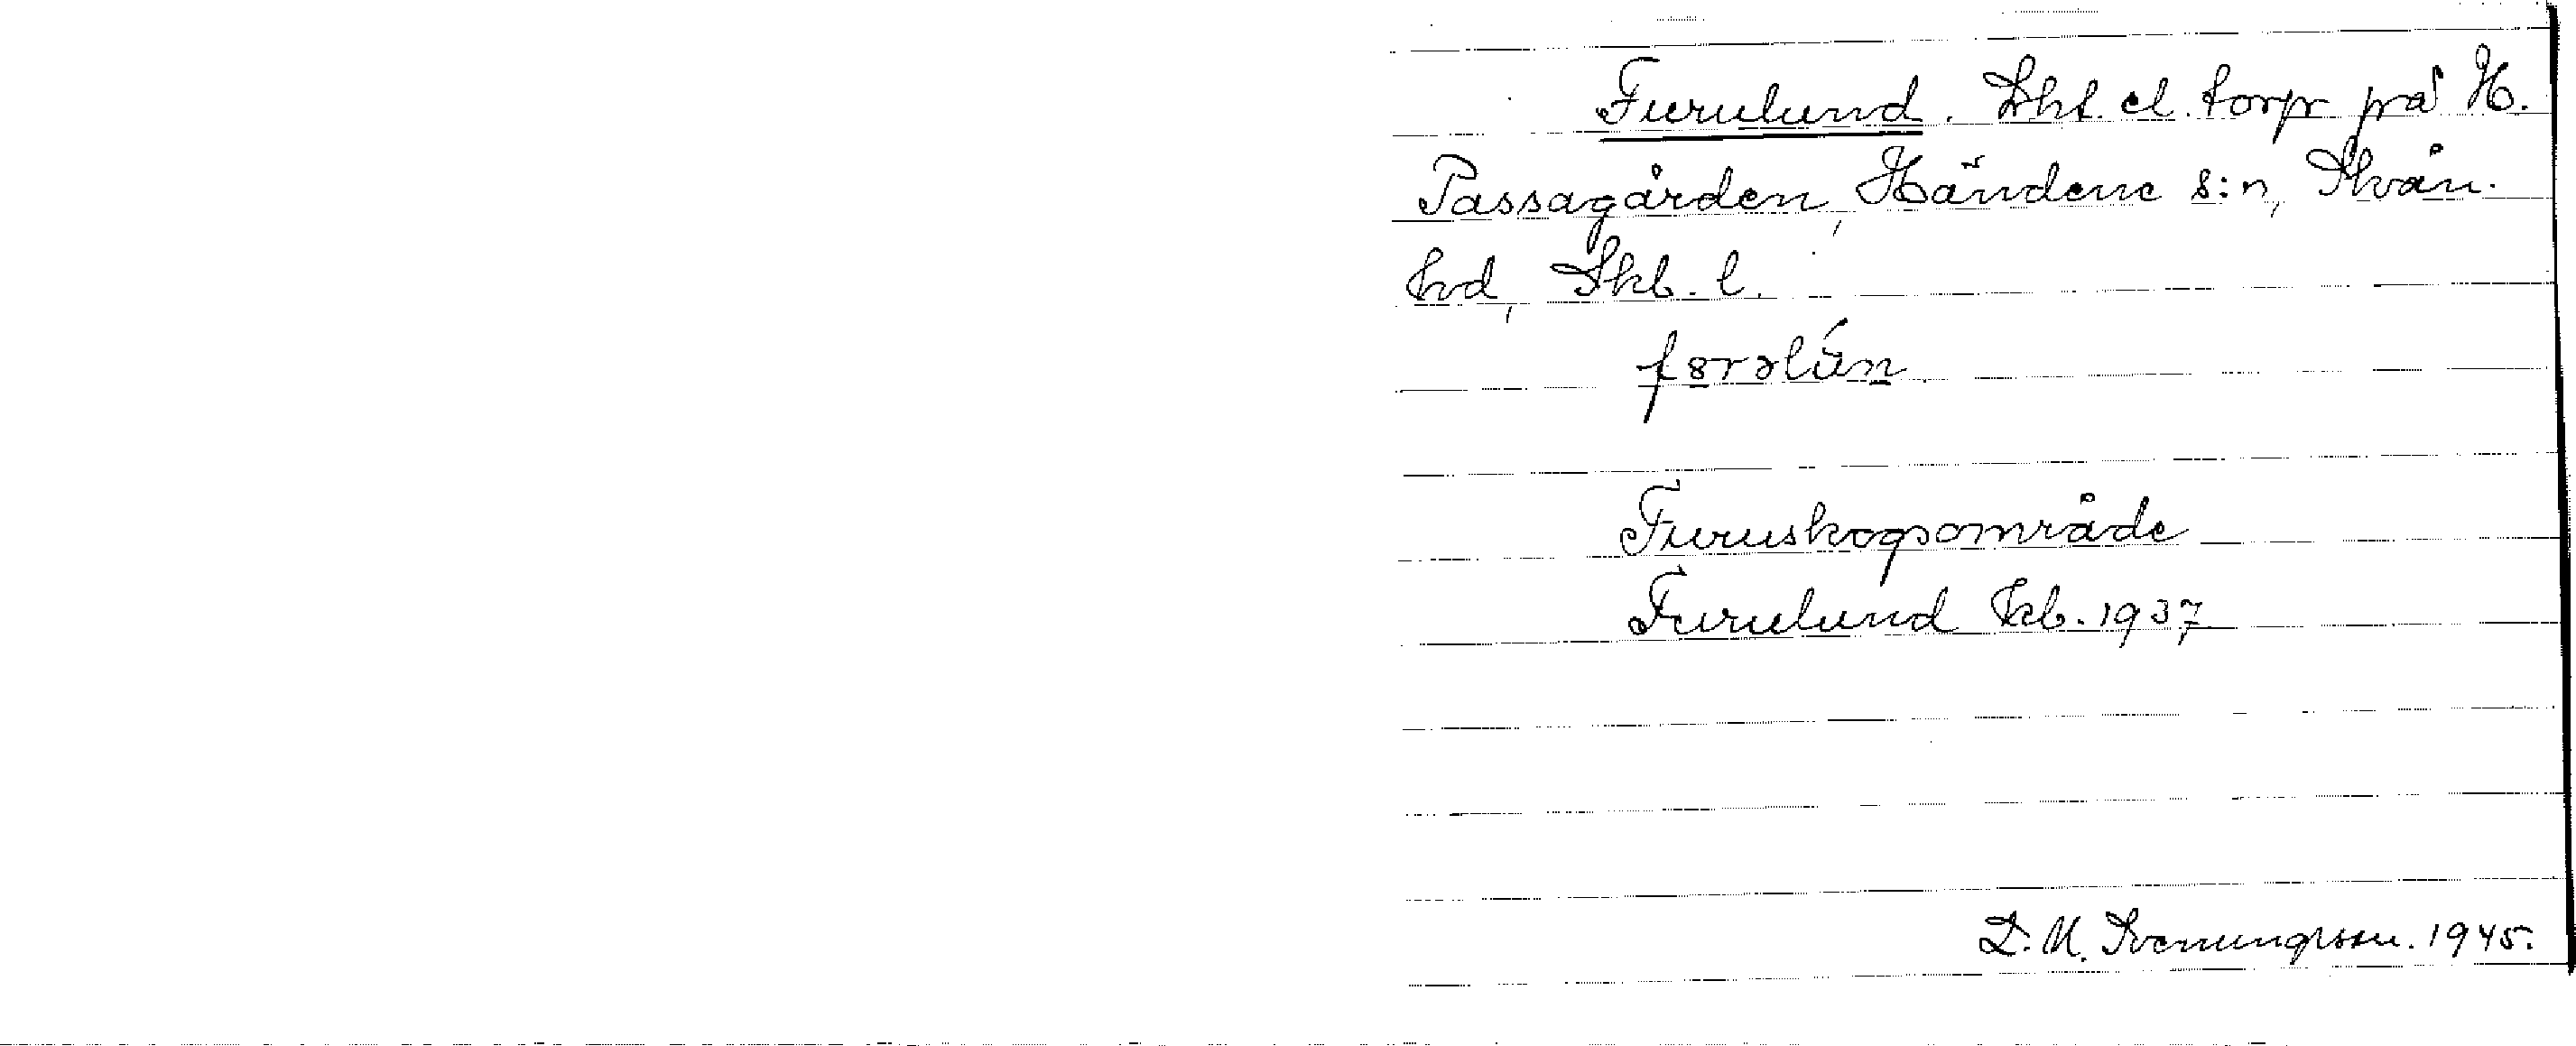 Furulund. Lht. el. torp på H.
Passagården, Händene s:n, Skån.
hd, Skb. l.
førəlún
Furuskogsområde
Furulund kb. 1937
D. U. Svenungsson. 1945.